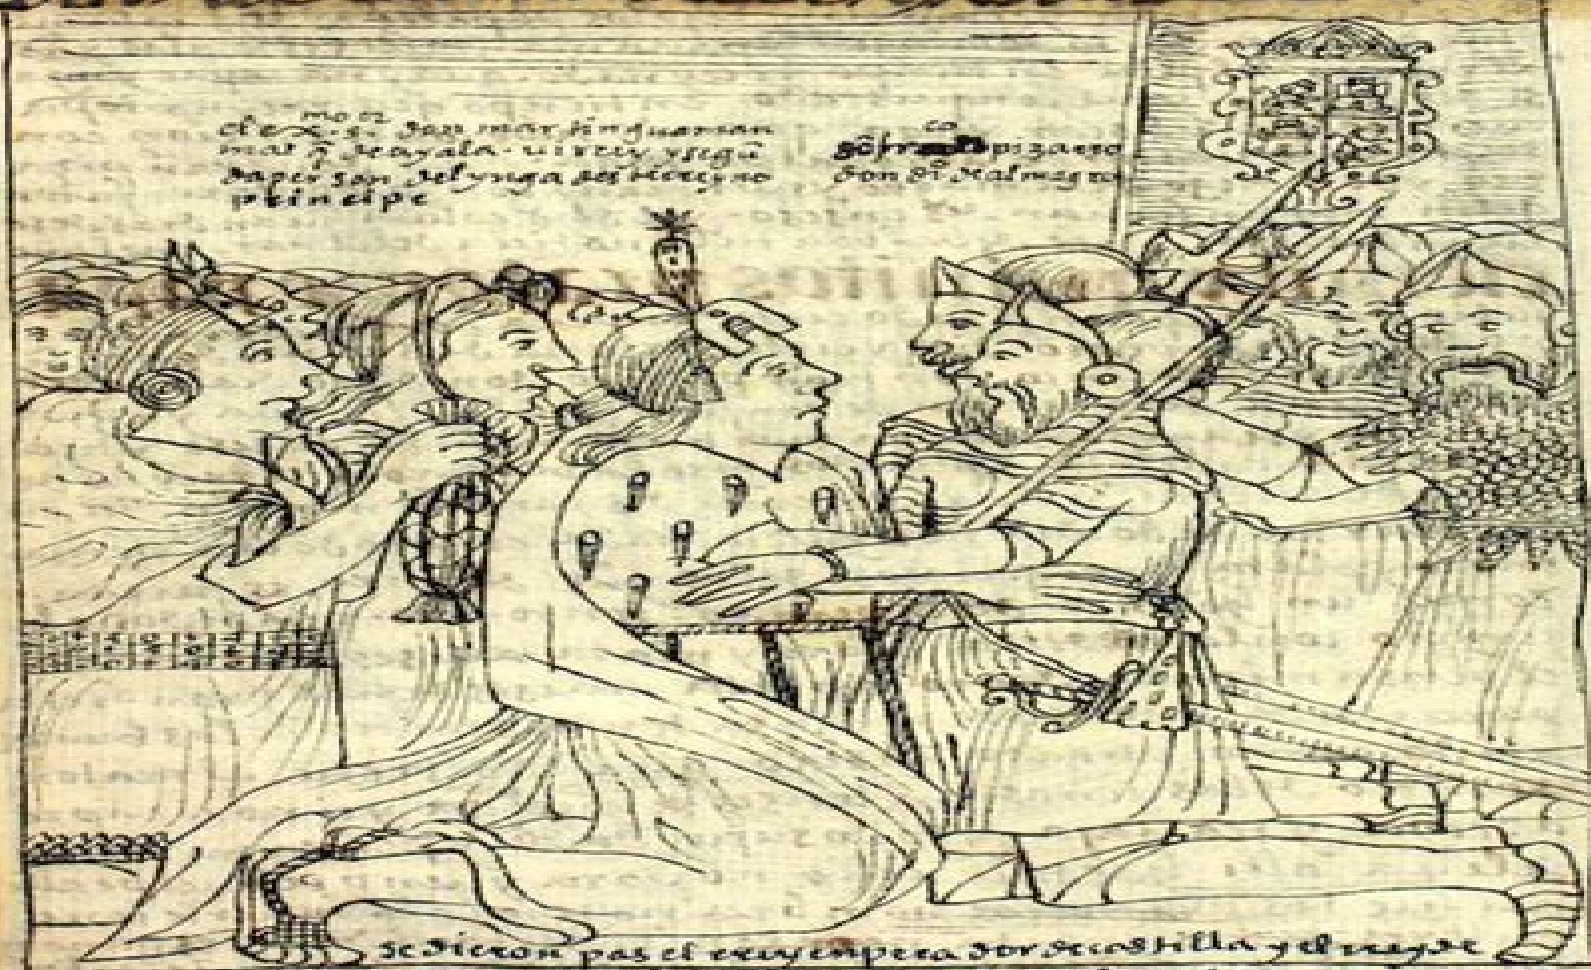 el ex^mo s^or don martin guaman
mal q̄ de ayala - virrey y segū
da person del ynga deste rreyno
principe
pizarro
don d^i de almagro
se dieron pas el rrey enperador de castilla y el rrey de